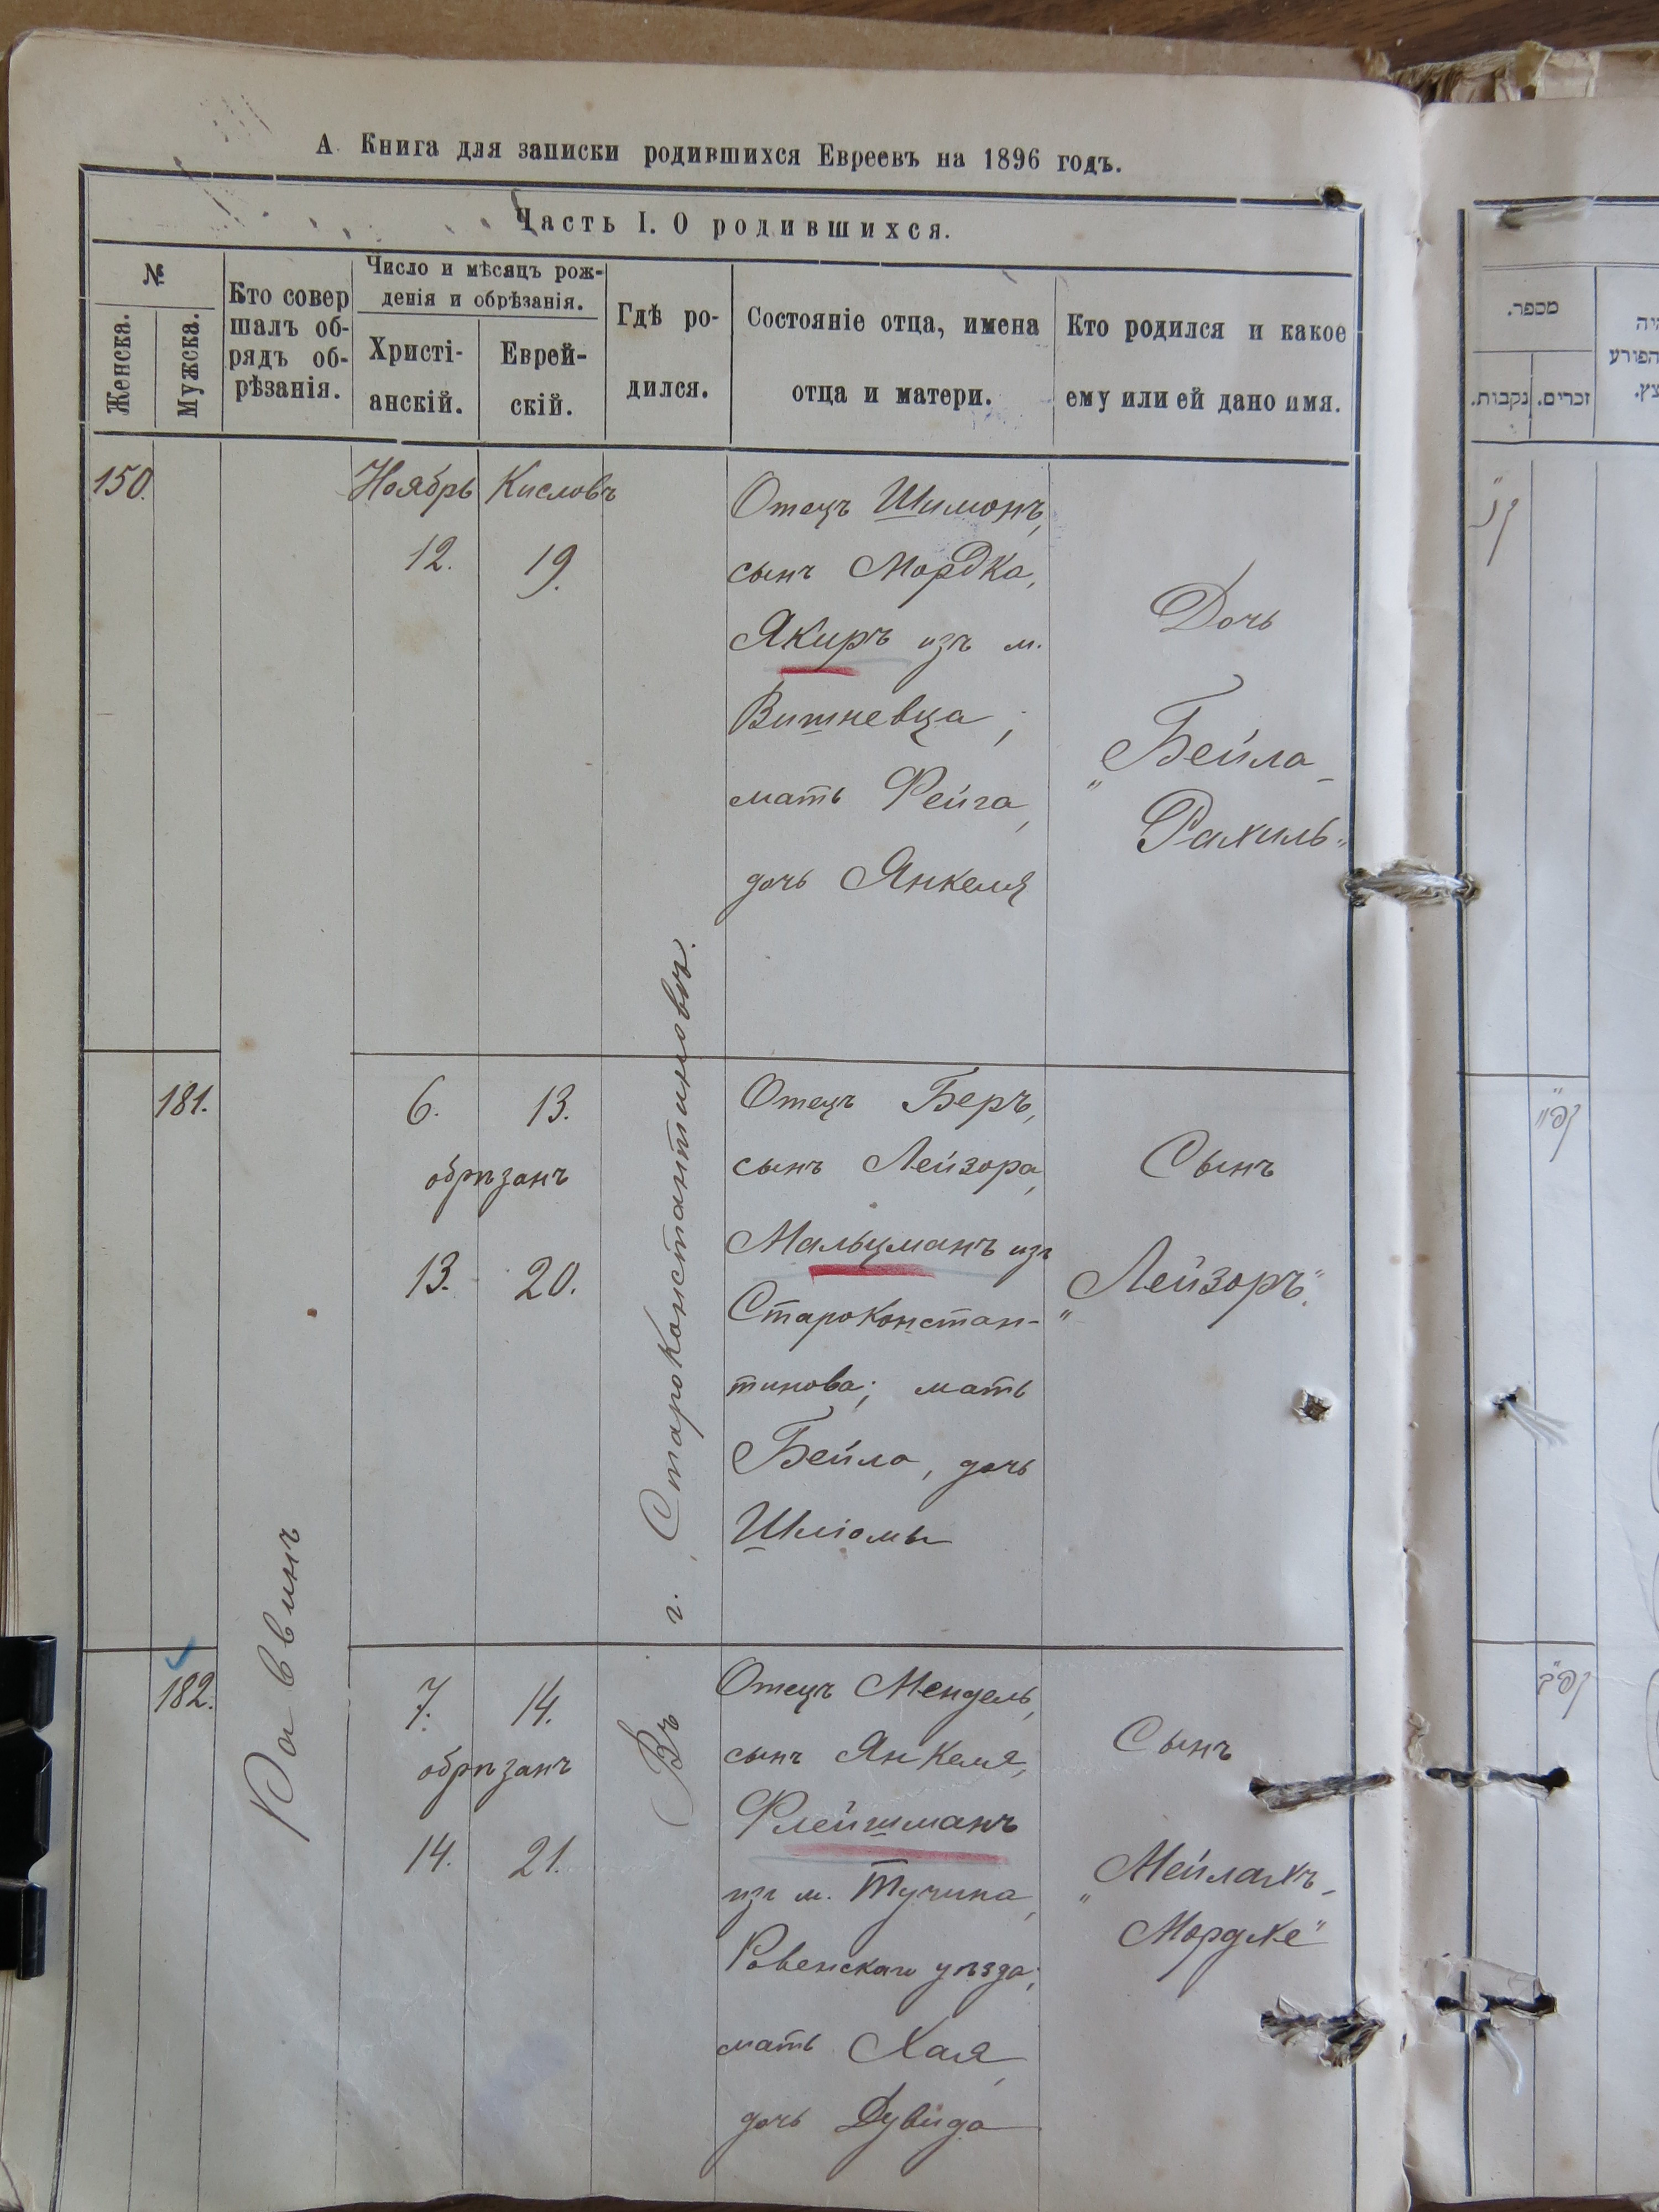 А. Книга для записки родившихся Евреевъ на 1896 годъ.
Часть I. О родившихся.
№
Женска.
Мужска.
Кто совер
шалъ об-
рядъ об-
рѣзанія.
Число и мѣсяцъ рож-
денія и обрѣзанія.
Христі-
анскій.
Еврей-
скій.
Гдѣ ро-
дился.
Состояніе отца, имена
отца и матери.
Кто родился и какое
ему или ей дано имя.
150.
Ноябрь
12.
Кисловъ
19.
Отецъ Шимонъ,
сынъ Мордка,
Якиръ изъ м.
Вишневца;
мать Фейга,
дочь Янкеля
Дочь
„Бейла-
Рахиль“
181.
6. 13.
обрѣзанъ
13. 20.
Отецъ Беръ,
сынъ Лейзора,
Мальцманъ изъ
Староконстан-
тинова; мать
Бейла, дочь
Шліомы
Сынъ
„Лейзоръ“.
182.
7. 14.
обрѣзанъ
14. 21.
Отецъ Мендель,
сынъ Янкеля,
Флейшманъ
изъ м. Тучина,
Ровенскаго уѣзда;
мать Хая,
дочь Дувида
Сынъ
„Мейлахъ-
Мордхе“
Раввинъ
Въ г. Староконстантиновѣ.
מספר.
נקבות.
זכרים.
הפורע
ק״נ
קפ״א
קפ״ב